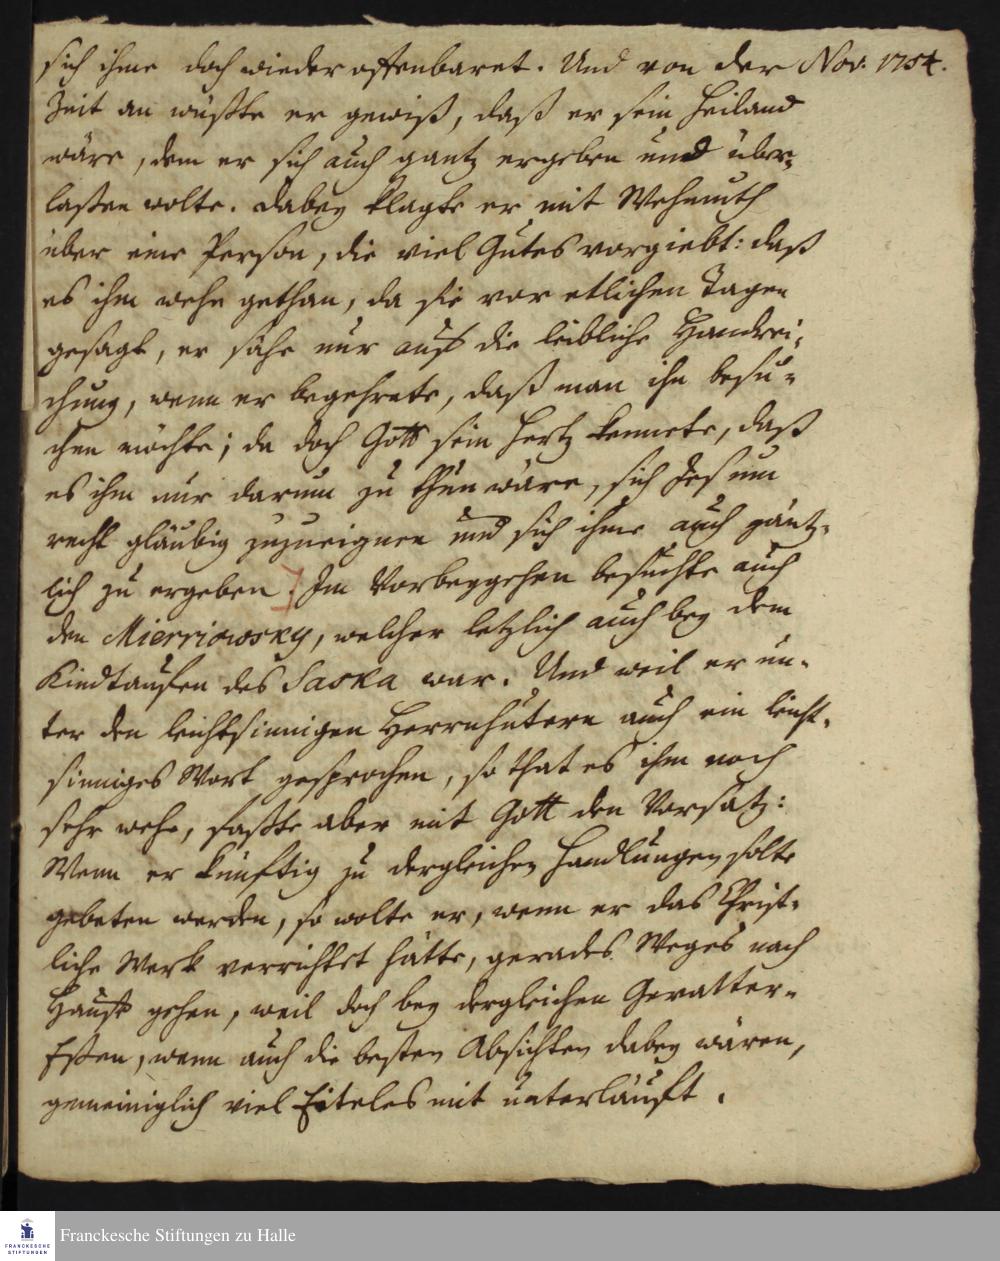 sich ihme doch wieder offenbaret. Und von der Nov. 1754.
Zeit an wußte er gewiß, daß er sein Heiland
wäre, dem er sich auch gantz ergeben und über-
laßen wolte. Dabey klagte er mit Wehmuth
über eine Person, die viel Gutes vorgiebt: daß
es ihm wehe gethan, da sie vor etlichen Tagen
gesagt, er sähe nur auf die leibliche Handrei-
chung, wenn er begehrete, daß man ihn besu-
chen möchte; da doch Gott sein Hertz kennete, daß
es ihm nur darum zu thun wäre, sich Jesum
recht gläubig zuzueignen und sich ihme auch gäntz-
lich zu ergeben. Im Vorbeygehen besuchte auch
den Mierriowsky, welcher letzlich auch bey dem
Kindtaufen des Saska war. Und weil er un-
ter den leichtsinnigen Herrnhutern auch ein leicht-
sinniges Wort gesprochen, so that es ihm noch
sehr wehe, faßte aber mit Gott den Vorsatz:
Wenn er künftig zu dergleichen Handlungen solte
gebeten werden, so wolte er, wenn er das Christ-
liche Werk verrichtet hätte, gerades Weges nach
Hauße gehen, weil doch bey dergleichen Gevatter-
Eßen, wenn auch die besten Absichten dabey wären,
gemeiniglich viel Eiteles mit unterläuft.
FRANCKESCHE
STIFTUNGEN
Franckesche Stiftungen zu Halle